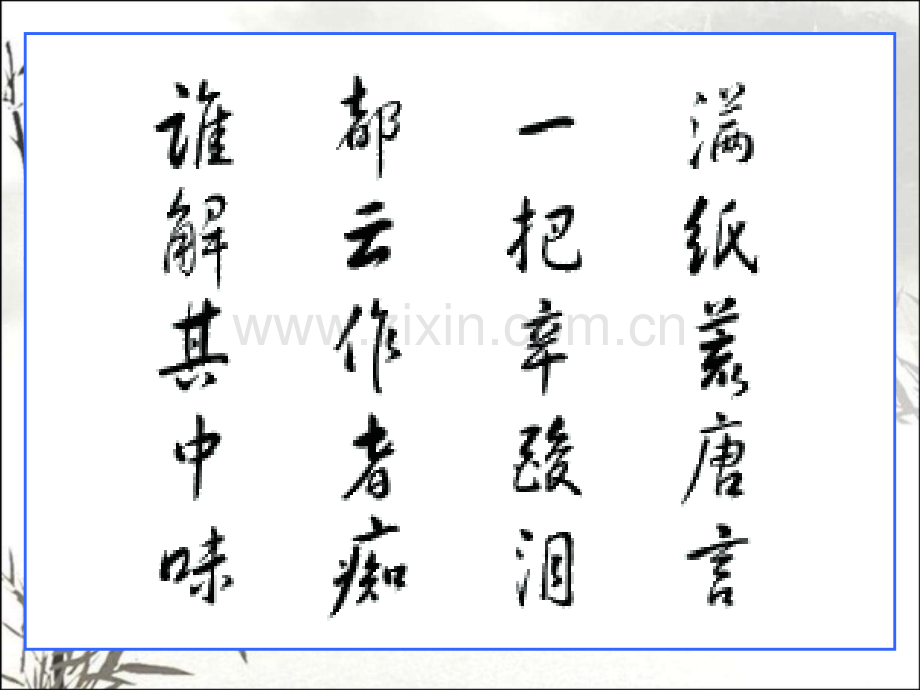 满纸荒唐言
一把辛酸泪
都云作者痴
谁解其中味
www.zixin.com.cn